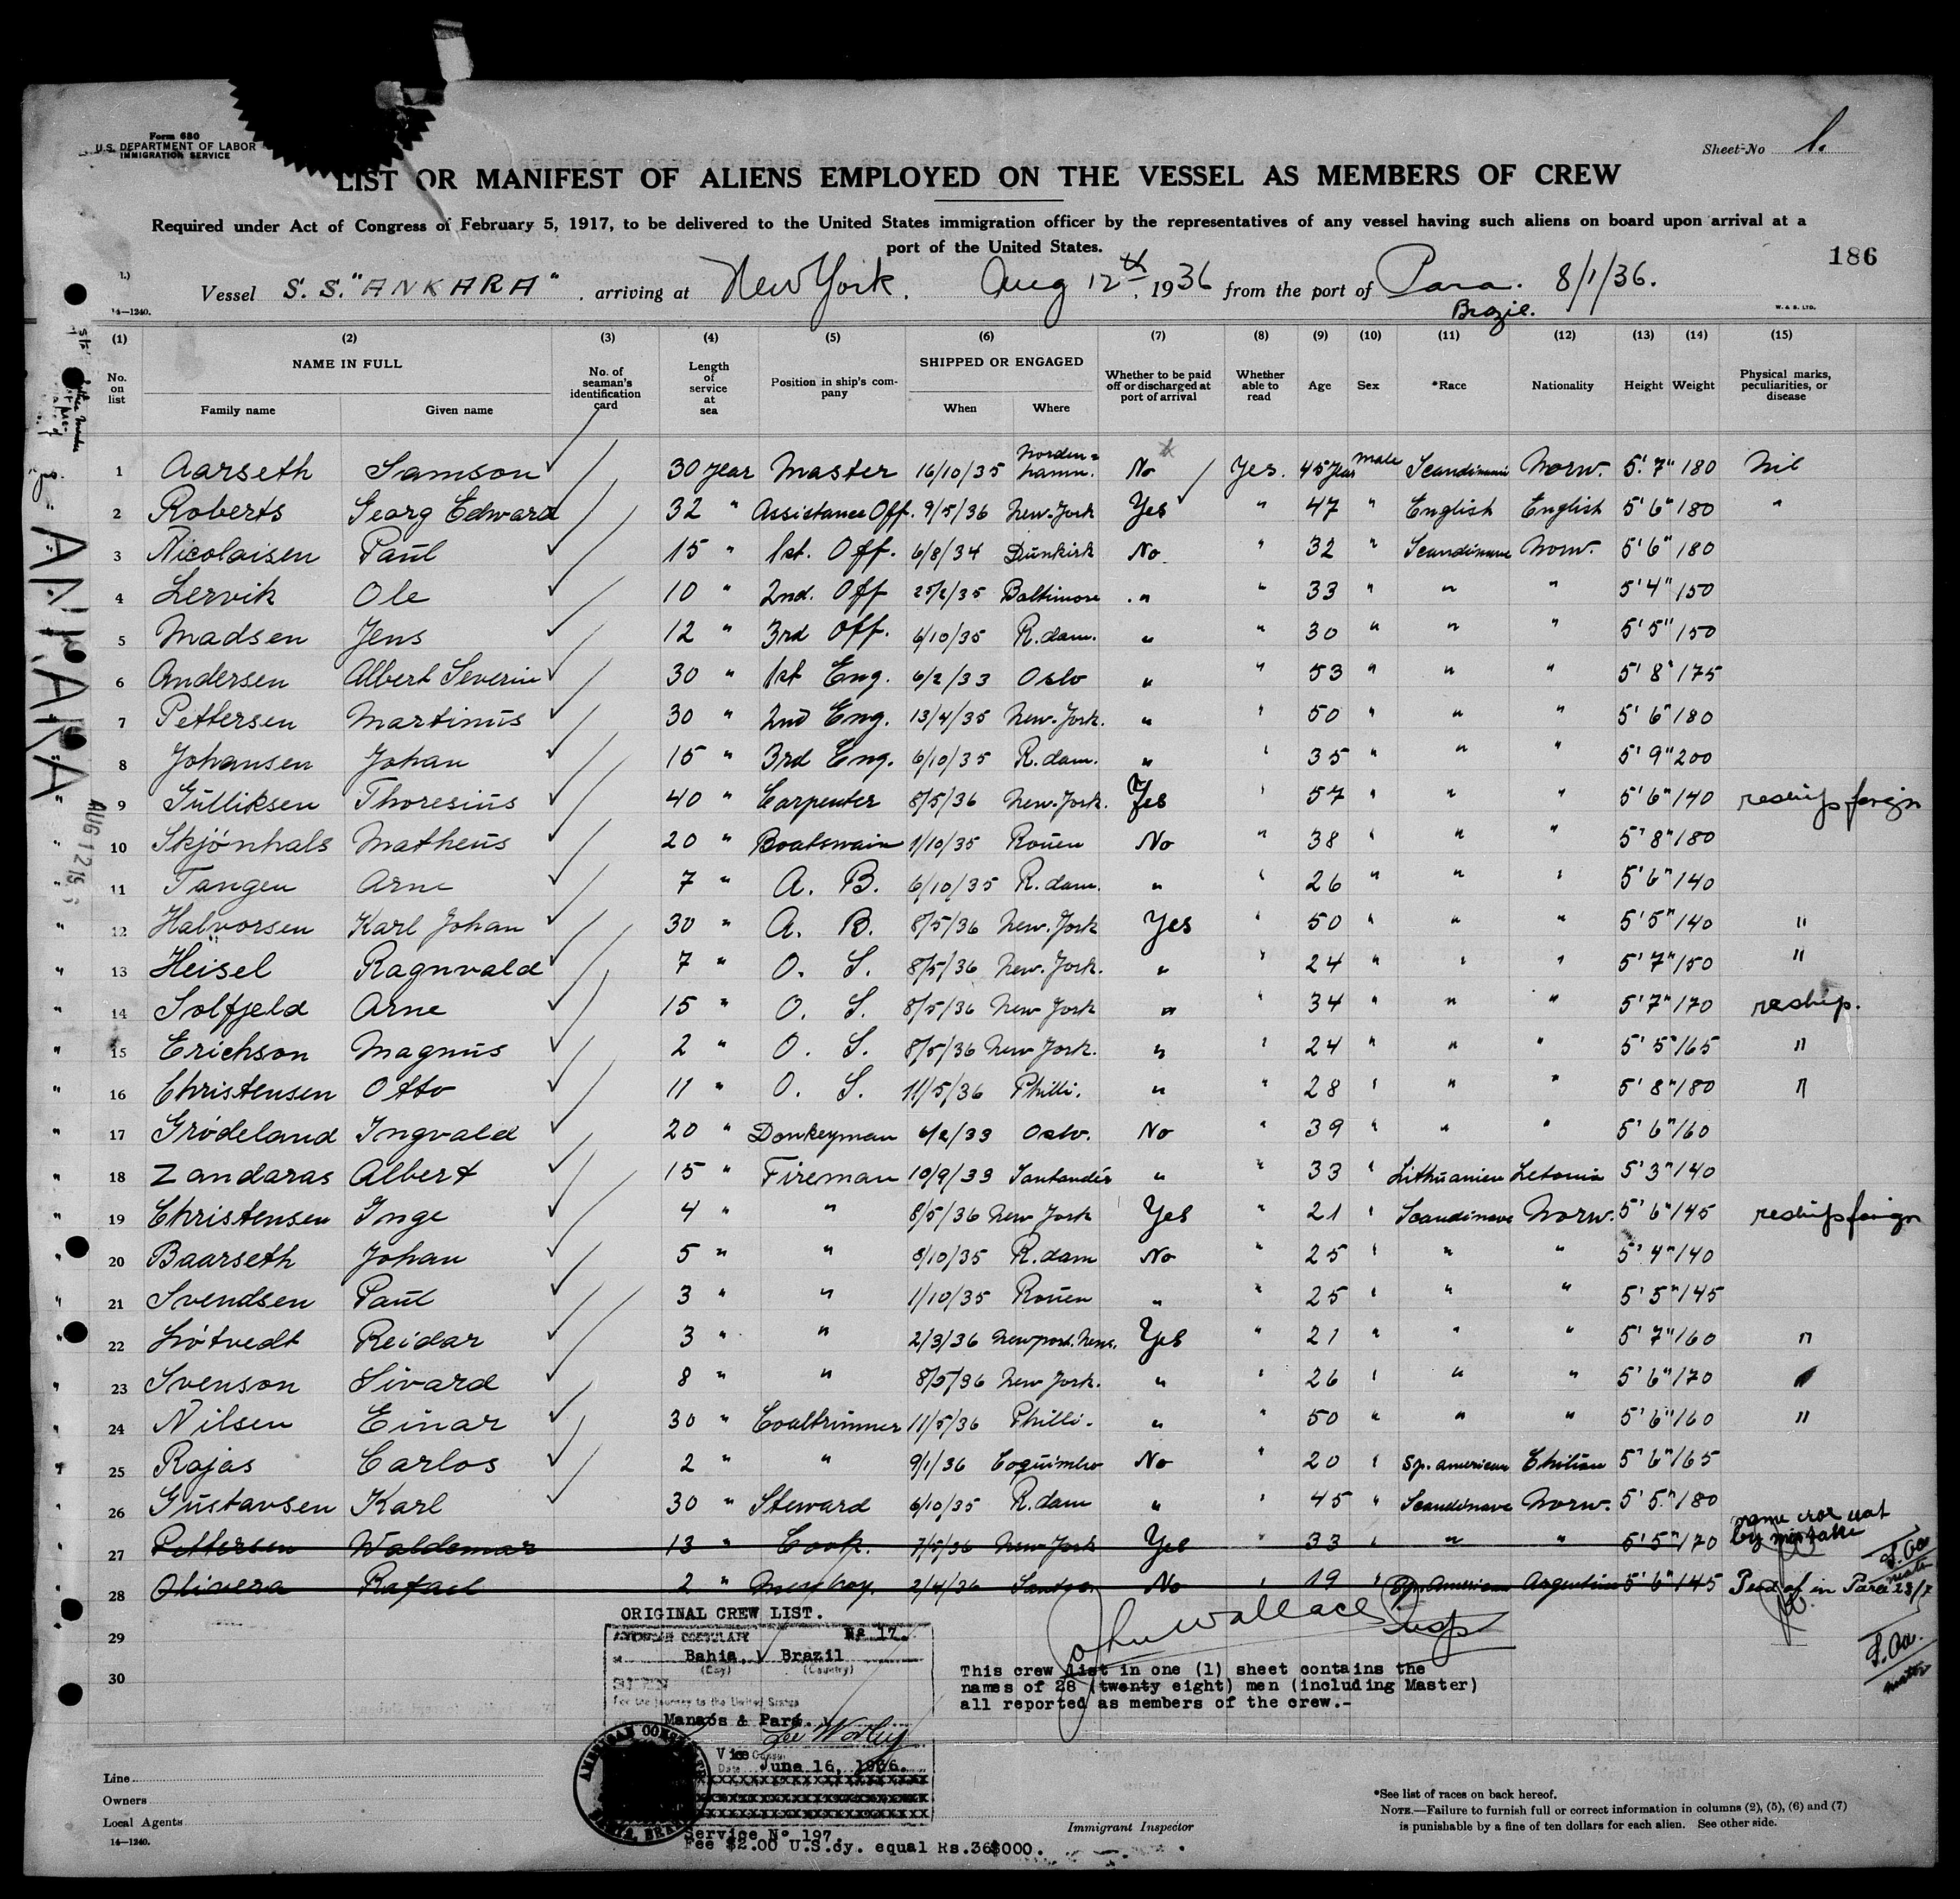 Form 680
U.S. DEPARTMENT OF LABOR
IMMIGRATION SERVICE
Sheet No 1.
LIST OR MANIFEST OF ALIENS EMPLOYED ON THE VESSEL AS MEMBERS OF CREW
Required under Act of Congress of February 5, 1917, to be delivered to the United States immigration officer by the representatives of any vessel having such aliens on board upon arrival at a
port of the United States.
186
Vessel S. S. "ANKARA" arriving at New York. Aug 12th, 1936 from the port of Para. 8/1/36.
Brazil.
14—1240.
W. & S. LTD.
(1) (2) (3) (4) (5) (6) (7) (8) (9) (10) (11) (12) (13) (14) (15)
No. on list
NAME IN FULL
Family name Given name
No. of seaman's identification card
Length of service at sea
Position in ship's company
SHIPPED OR ENGAGED
When Where
Whether to be paid off or discharged at port of arrival
Whether able to read
Age Sex *Race Nationality Height Weight
Physical marks, peculiarities, or disease
1 Aarseth Samson 30 year Master 16/10/35 Nordenhamn. No Yes. 45 year male Scandinavi Norw. 5' 7" 180 Nil
2 Roberts Georg Edward 32 " Assistance Off. 9/5/36 New-York Yes " 47 " English English 5' 6" 180 "
3 Nicolaisen Paul 15 " 1st. Off. 6/8/34 Dunkirk No " 32 " Scandinave Norw. 5' 6" 180
4 Lervik Ole 10 " 2nd. Off 25/2/35 Baltimore " " 33 " " " 5' 4" 150
5 Madsen Jens 12 " 3rd Off. 6/10/35 R.dam. " " 30 " " " 5' 5" 150
6 Andersen Albert Severin 30 " 1st Eng. 6/2/33 Oslo " " 53 " " " 5' 8" 175
7 Pettersen Martinus 30 " 2nd Eng. 13/4/35 New-York. " " 50 " " " 5' 6" 180
8 Johansen Johan 15 " 3rd Eng. 6/10/35 R.dam. " " 35 " " " 5' 9" 200
9 Gulliksen Thoresius 40 " Carpenter 8/5/36 New-York. Yes " 57 " " " 5' 6" 140 reship foreign
10 Skjónhals Matheus 20 " Boatswain 1/10/35 Rouen No " 38 " " " 5' 8" 180
11 Tangen Arne 7 " A. B. 6/10/35 R.dam. " " 26 " " " 5' 6" 140
12 Halvorsen Karl Johan 30 " A. B. 8/5/36 New-York Yes " 50 " " " 5' 5" 140 "
13 Heisel Ragnvald 7 " O. S. 8/5/36 New-York. " " 24 " " " 5' 7" 150 "
14 Solfjeld Arne 15 " O. S. 8/5/36 New York " " 34 " " " 5' 7" 170 reship.
15 Erichson Magnus 2 " O. S. 8/5/36 New York. " " 24 " " " 5' 5" 165 "
16 Christensen Otto 11 " O. S. 11/5/36 Philli. " " 28 " " " 5' 8" 180 "
17 Gródeland Ingvald 20 " Donkeyman 6/2/33 Oslo. No " 39 " " " 5' 6" 160
18 Zandaras Albert 15 " Fireman 10/9/33 Santander " " 33 " Lithuanien Letonia 5' 3" 140
19 Christensen Inge 4 " " 8/5/36 New York Yes " 21 " Scandinave Norw. 5' 6" 145 reship foreign
20 Baarseth Johan 5 " " 8/10/35 R.dam No " 25 " " " 5' 4" 140
21 Svendsen Paul 3 " " 1/10/35 Rouen " " 25 " " " 5' 5" 145
22 Lótvedt Reidar 3 " " 2/3/36 Newport. News. Yes " 21 " " " 5' 7" 160 "
23 Svenson Sivard 8 " " 8/5/36 New York. " " 26 " " " 5' 6" 170 "
24 Nilsen Einar 30 " Coaltrimmer 11/5/36 Philli. " " 50 " " " 5' 6" 160 "
25 Rojas Carlos 2 " " 9/1/36 Coquimbo No " 20 " Sp. american Chilian 5' 6" 165
26 Gustavsen Karl 30 " Steward 6/10/35 R.dam " " 45 " Scandinave Norw. 5' 5" 180
27 Pettersen Waldemar 13 " Cook. 7/5/36 New York Yes " 33 " " " 5' 5" 170 by mistake
28 Olivera Rafael 2 " Messboy. 2/4/36 Santos No " 19 " Sp. American Argentina 5' 6" 145 Paid of in Para 23/7
29
30
S. Aa.
S. Aa.
John Wallace Insp
ANKARA
AUG 12 19
ORIGINAL CREW LIST.
AMERICAN CONSULATE No 17.
at Bahia, Brazil
(City) (Country)
For the journey to the United States
Manaós & Pará.
Lee Worley
Vice Consul
Date June 16, 1936.
Service Nº 197.
Fee $2.00 U.S.cy. equal Rs.36$000.
AMERICAN CONSULATE
This crew list in one (1) sheet contains the
names of 28 (twenty eight) men (including Master)
all reported as members of the crew.-
Line
Owners
Local Agents
14—1240.
Immigrant Inspector
*See list of races on back hereof.
NOTE.—Failure to furnish full or correct information in columns (2), (5), (6) and (7)
is punishable by a fine of ten dollars for each alien. See other side.